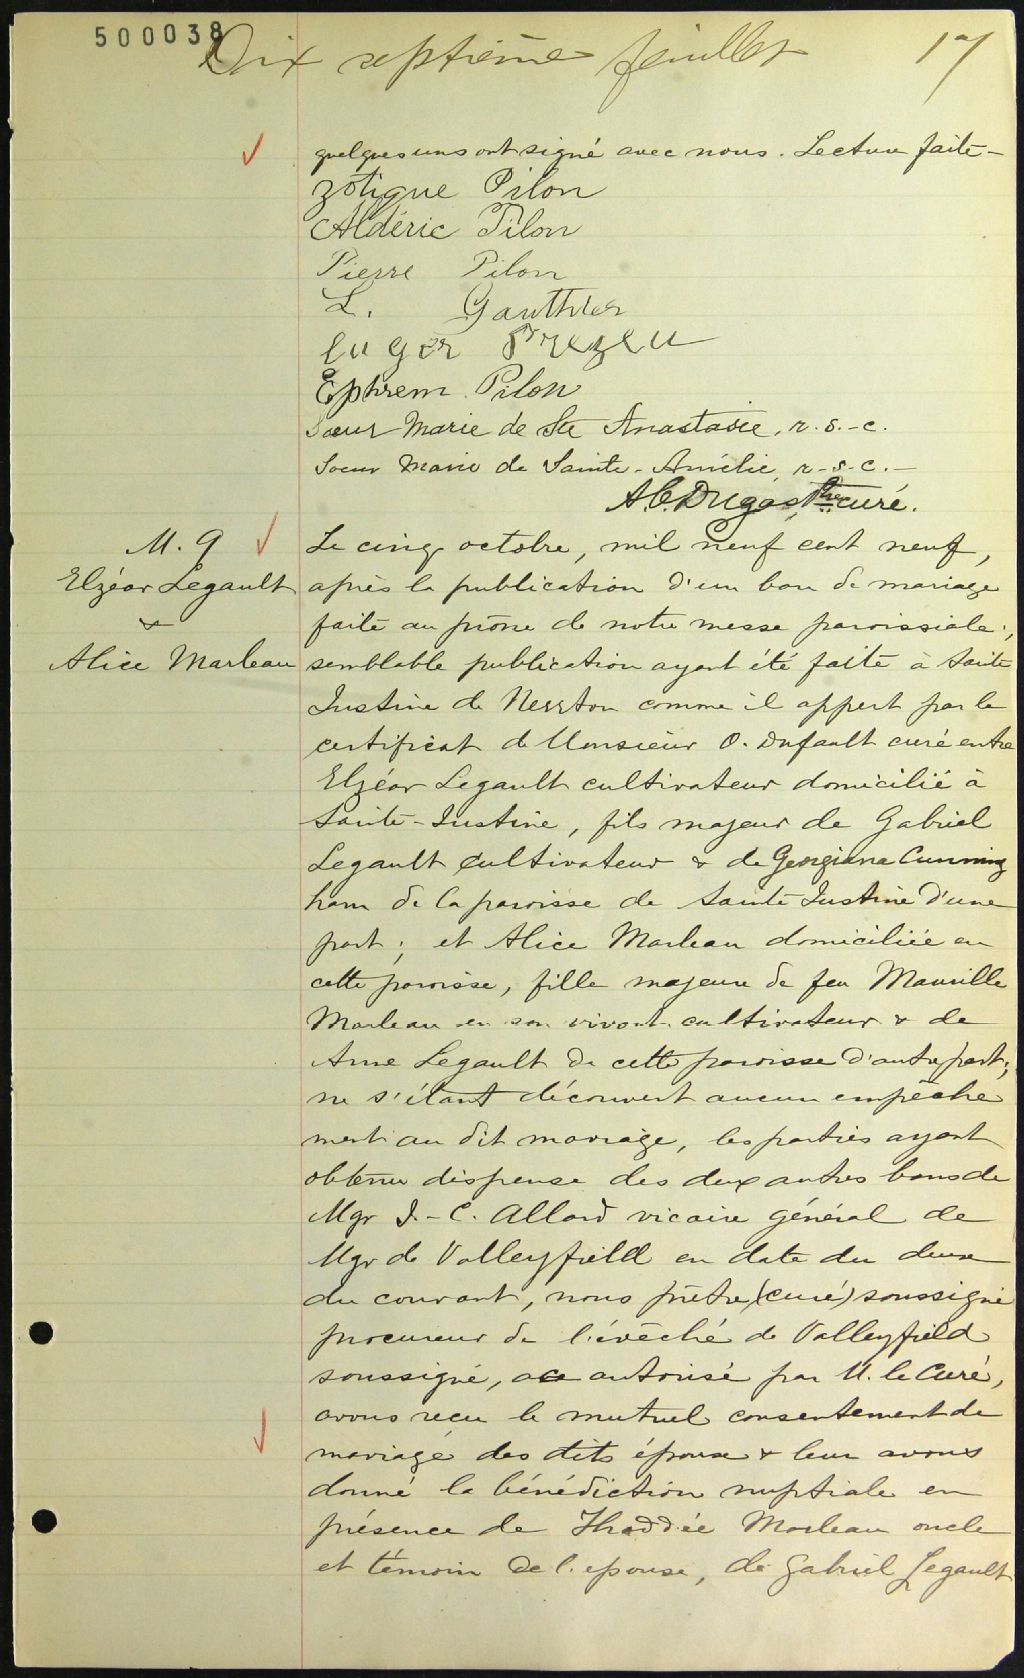 500038
Dix septième feuillet 17
quelques uns ont signé avec nous. Lecture faite -
Zotique Pilon
Aldéric Pilon
Pierre Pilon
L. Gauthier
Ephrem Pilon
Soeur Marie de Ste Anastasie, r.s.-c.
Soeur Marie de Sainte-Amélie r-s-c. -
A.C. Dugas, Ptre curé.
M. 9
Elzéar Legault
&
Alice Marleau
Le cinq octobre, mil neuf cent neuf,
après la publication d'un ban de mariage
faite au prône de notre messe paroissiale;
semblable publication ayant été faite à Sainte
Justine de Newton comme il appert par le
certificat de Monsieur O. Dufault curé entre
Elzéar Legault cultivateur domicilié à
Sainte-Justine, fils majeur de Gabriel
Legault cultivateur & de Georgiana Cunning
ham de la paroisse de Sainte Justine d'une
part; et Alice Marleau domiciliée en
cette paroisse, fille majeure de feu Maurille
Marleau en son vivant cultivateur & de
Anne Legault de cette paroisse d'autre part;
ne s'étant découvert aucun empêche
ment au dit mariage, les parties ayant
obtenu dispense des deux autres bans de
Mgr J.-C. Allard vicaire général de
Mgr de Valleyfield en date du deux
du courant, nous prêtre (curé) soussigné
procureur de l'évêché de Valleyfield
soussigné, autorisé par M. le Curé,
avons reçu le mutuel consentement de
mariage des dits époux & leur avons
donné la bénédiction nuptiale en
présence de Thaddée Marleau oncle
et témoin de l'epouse, de Gabriel Legault